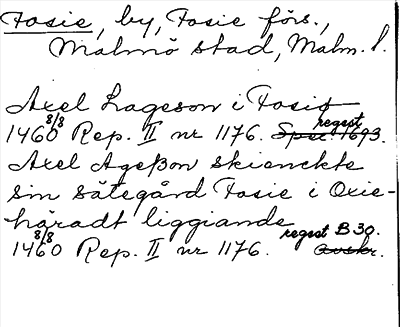 Fosie, by, Fosie förs.,
Malmö stad, Malm. l.
Axel Lageson i Fosie
1460 8/8 Rep. II nr 1176. Spec. 1693. regest
Axel Ageßon skienckte
sin sätegård Fosie i Oxie-
häradt liggiande
1460 8/8 Rep. II nr 1176. regest B 30. avskr.